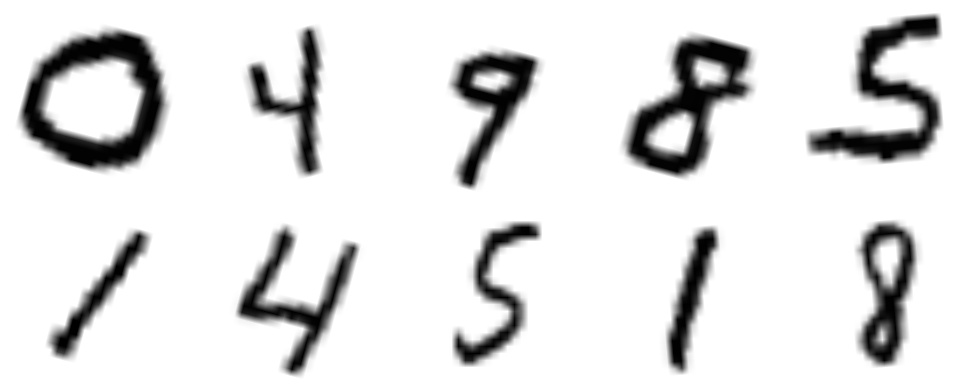 0 4 9 8 5
1 4 5 1 8